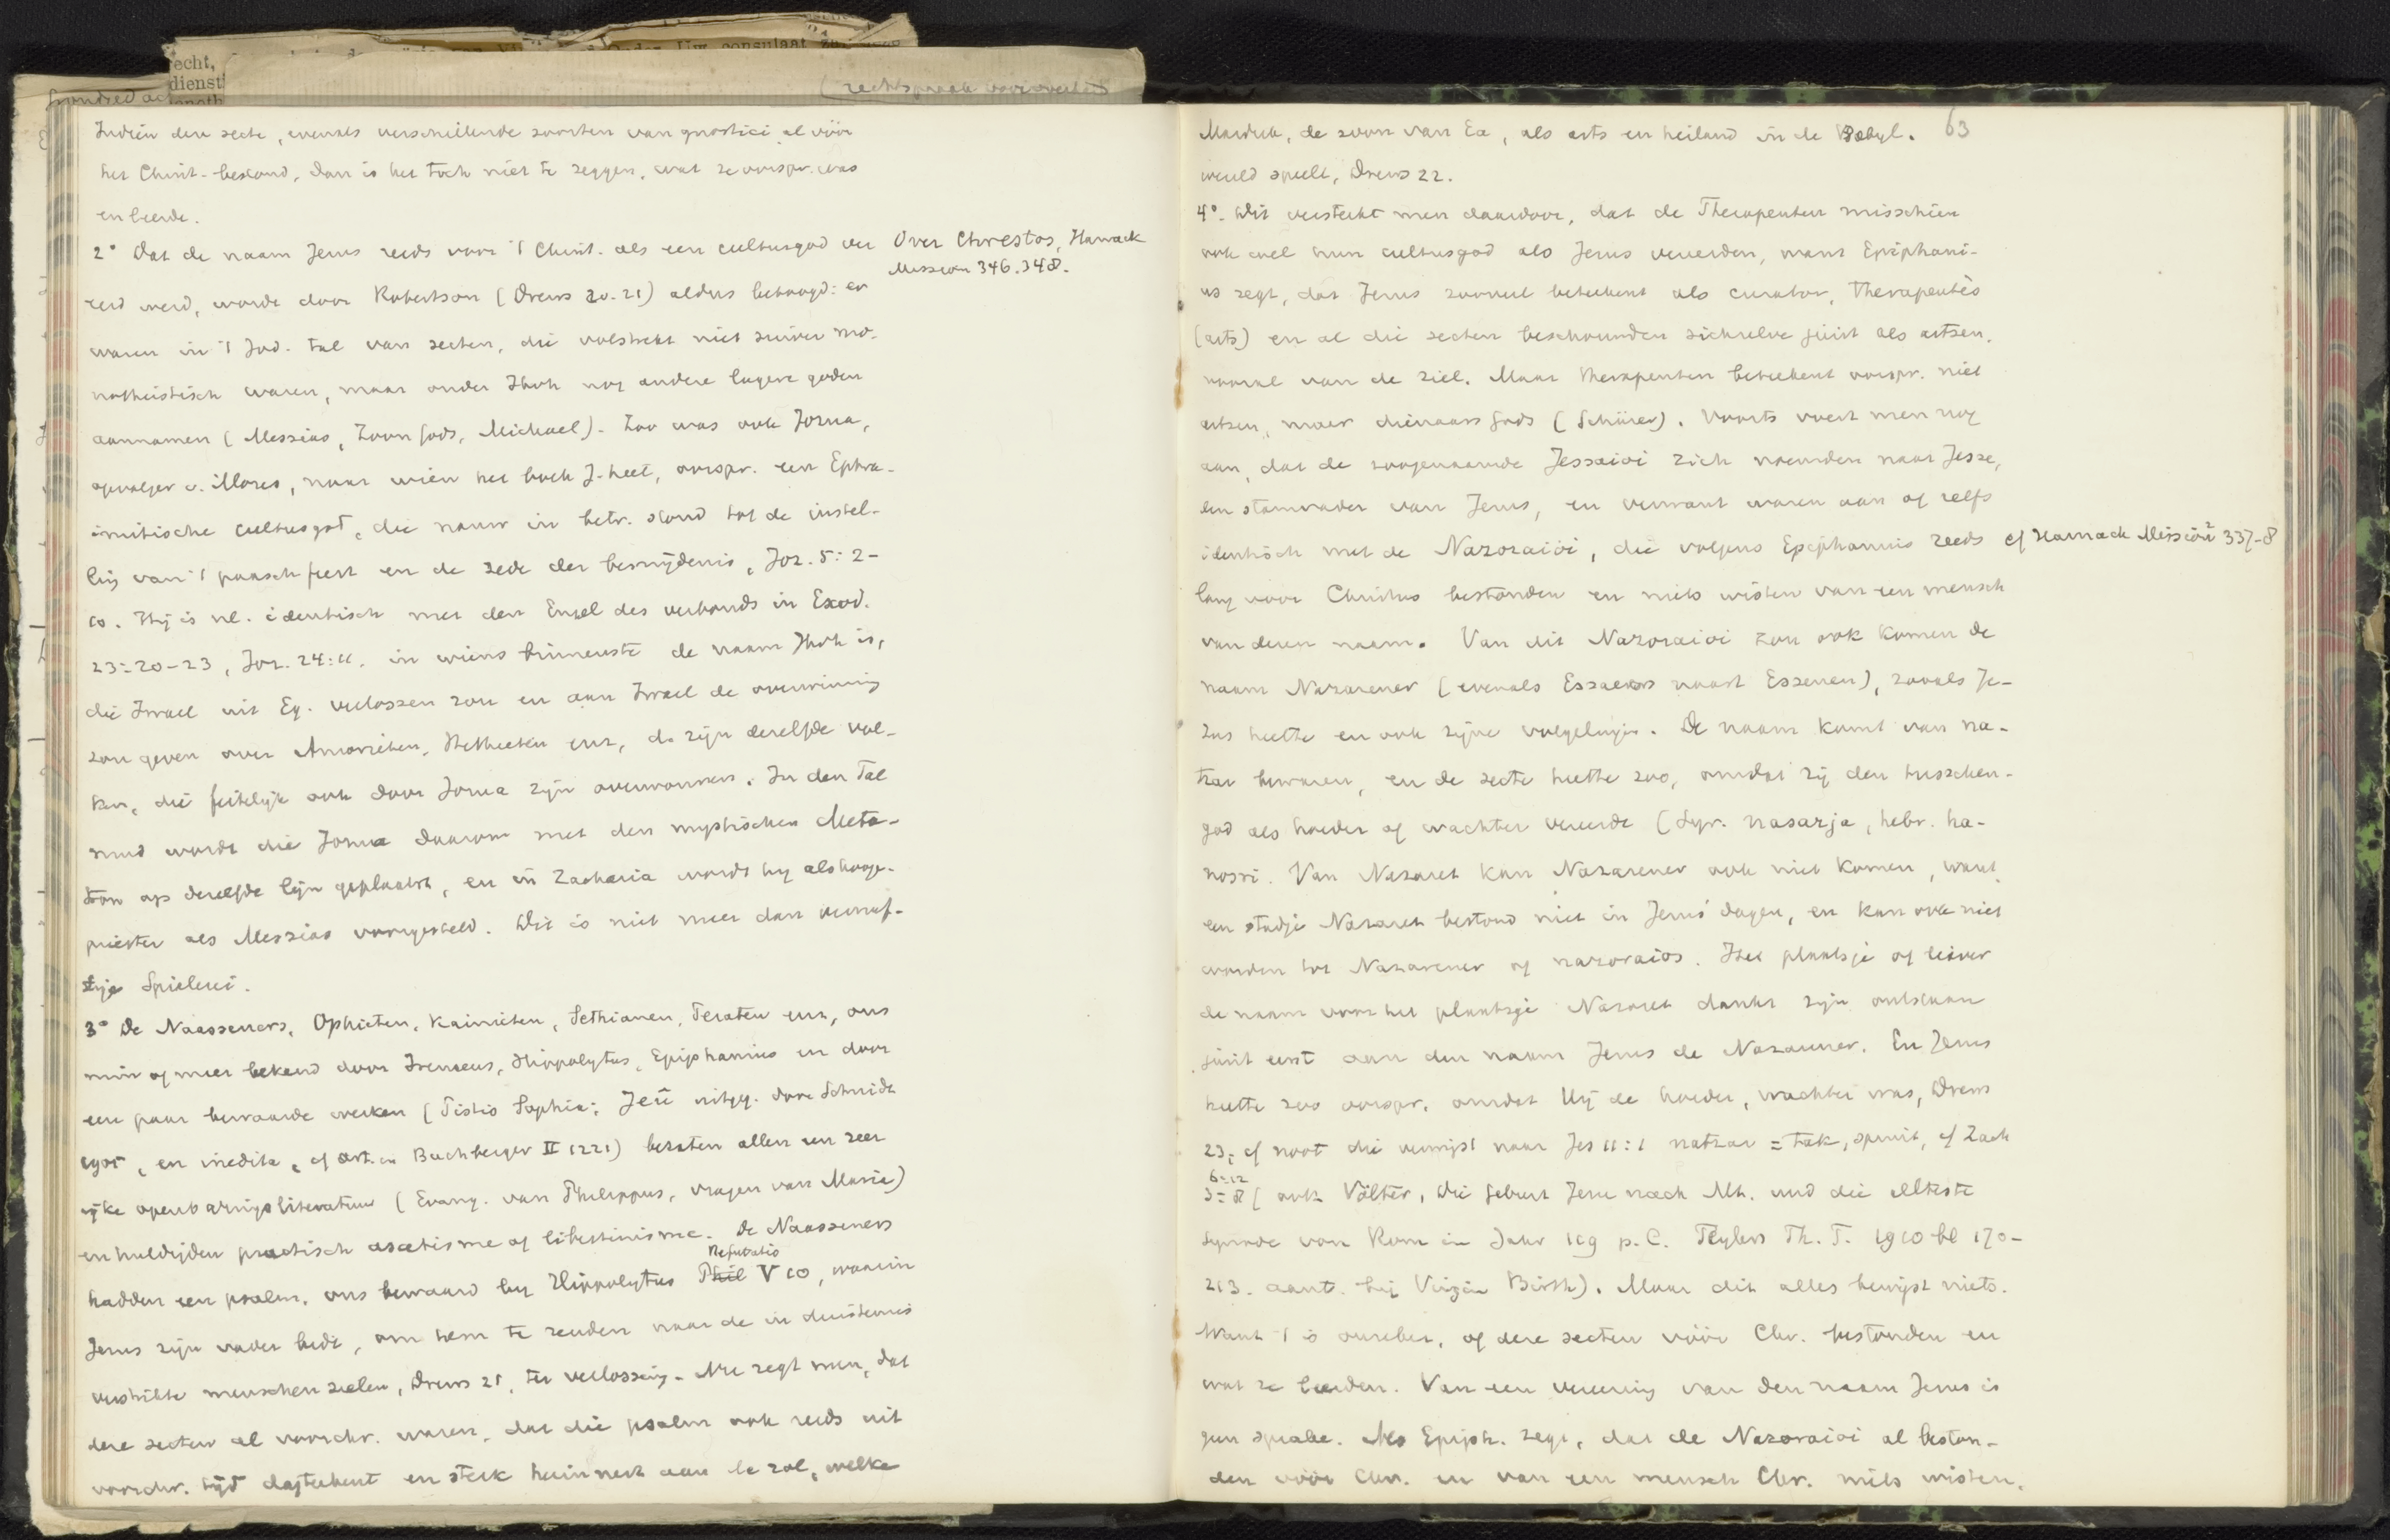 echt,
dienst
Uw consulaat
Indien deze secte, evenals verschillende soorten van gnostici al vóór
het Christ. bestond, dan is het toch niet te zeggen, wat ze oorspr. was
en leerde.
2° Dat de naam Jezus reeds voor 't Christ. als een cultusgod ver
Over Chrestos, Harnack
Mission 346. 348.
eerd werd, wordt door Robertson (Drews 20-21) aldus betoogd: er
waren in 't Jod. tal van secten, die volstrekt niet zuiver mo-
notheistisch waren, maar onder Jhvh nog andere lagere goden
aannamen (Messias, Zoon Gods, Michael). Zoo was ook Jozua,
opvolger v. Mozes, naar wien het boek J. heet, oorspr. een Ephra-
imitische cultusgod, die nauw in betr. stond tot de instel-
ling van 't paaschfeest en de zede der besnijdenis, Joz. 5: 2-
10. Hij is nl. identisch met den Engel des verbonds in Exod.
23: 20-23, Joz. 24:11. in wiens binnenste de naam Jhvh is,
die Israel uit Eg. verlossen zou en aan Israel de overwinning
zou geven over Amorieten, Hethieten enz, d. zijn dezelfde vol-
ken, die feitelijk ook door Jozua zijn overwonnen. In den Tal
mud wordt die Jozua daarom met den mystischen Meta-
tron op dezelfde lijn geplaatst, en in Zacharia wordt hij als hooge-
priester als Messias voorgesteld. Dit is niet meer dan vernuf-
tige Spielerei.
3° De Naasseners, Ophieten, Kainieten, Sethianen, Peraten enz, ons
min of meer bekend door Ireneus, Hippolytus, Epiphanius en door
een paar bewaarde werken (Pistis Sophia; Jeû uitgeg. door Schmidt
1905, en inedita, cf art. in Buchberger II 1221) bezaten allen een zeer
rijke openbaringsliteratuur (Evang. van Philippus, vragen van Maria)
en huldigden practisch ascetisme of libertinisme. De Naasseners
hadden een psalm, ons bewaard bij Hippolytus Phil Refutatio V 10, waarin
Jezus zijn vader bidt, om hem te zenden naar de in duisternis
verstrikte menschenzielen, Drews 21, ter verlossing. Nu zegt men, dat
deze secten al voorchr. waren, dat die psalm ook reeds uit
voorchr. tijd dagteekent en sterk herinnert aan de rol, welke
63
Marduk, de zoon van Ea, als arts en heiland in de Babyl.
wereld speelt, Drews 22.
4°. Dit versterkt men daardoor, dat de Therapeuten misschien
ook wel hun cultusgod als Jezus vereerden, want Epiphani-
us zegt, dat Jezus zooveel beteekent als curator, therapeutès
(arts) en al die secten beschouwden zichzelve juist als artsen,
vooral van de ziel. Maar therapeuten beteekent oorspr. niet
artsen, maar dienaars Gods (Schürer). Voorts voert men nog
aan, dat de zoogenaamde Jessaioi zich noemden naar Jesse,
een stamvader van Jezus, en verwant waren aan of zelfs
identisch met de Nazoraioi, die volgens Epiphanius reeds
cf Harnack Mission² 337-8
lang voor Christus bestonden en niets wisten van een mensch
van dezen naam. Van dit Nazoraioi zou ook komen de
naam Nazarener (evenals Essaeers naast Essenen), zooals Je-
zus heette en ook zijne volgelingen. De naam komt van na-
tzar bewaren, en de secte heette zoo, omdat zij den tusschen-
god als hoeder of wachter vereerde (Syr. nasarja, hebr. ha-
nosri. Van Nazaret kan Nazarener ook niet komen, want
een stadje Nazaret bestond niet in Jezus' dagen, en kan ook niet
worden tot Nazarener of nazoraios. Het plaatsje of liever
de naam voor het plaatsje Nazaret dankt zijn ontstaan
juist eerst aan den naam Jezus de Nazarener. En Jezus
heette zoo oorspr. omdat Hij de hoeder, wachter was, Drews
23; cf noot die verwijst naar Jes 11:1 natzar = tak, spruit, cf Zach
6:12
3:8 (ook Völter, Die Geburt Jesu nach Mt. und die älteste
Synode von Rom im Jahr 119 p. C. Teylers Th. T. 1910 bl 170-
213. aant. bij Virgin Birth). Maar dit alles bewijst niets.
Want 't is onzeker, of deze secten vóór Chr. bestonden en
wat ze leerden. Van een vereering van den naam Jezus is
geen sprake. Als Epiph. zegt, dat de Nazoraioi al beston-
den vóór Chr. en van een mensch Chr. niets wisten,